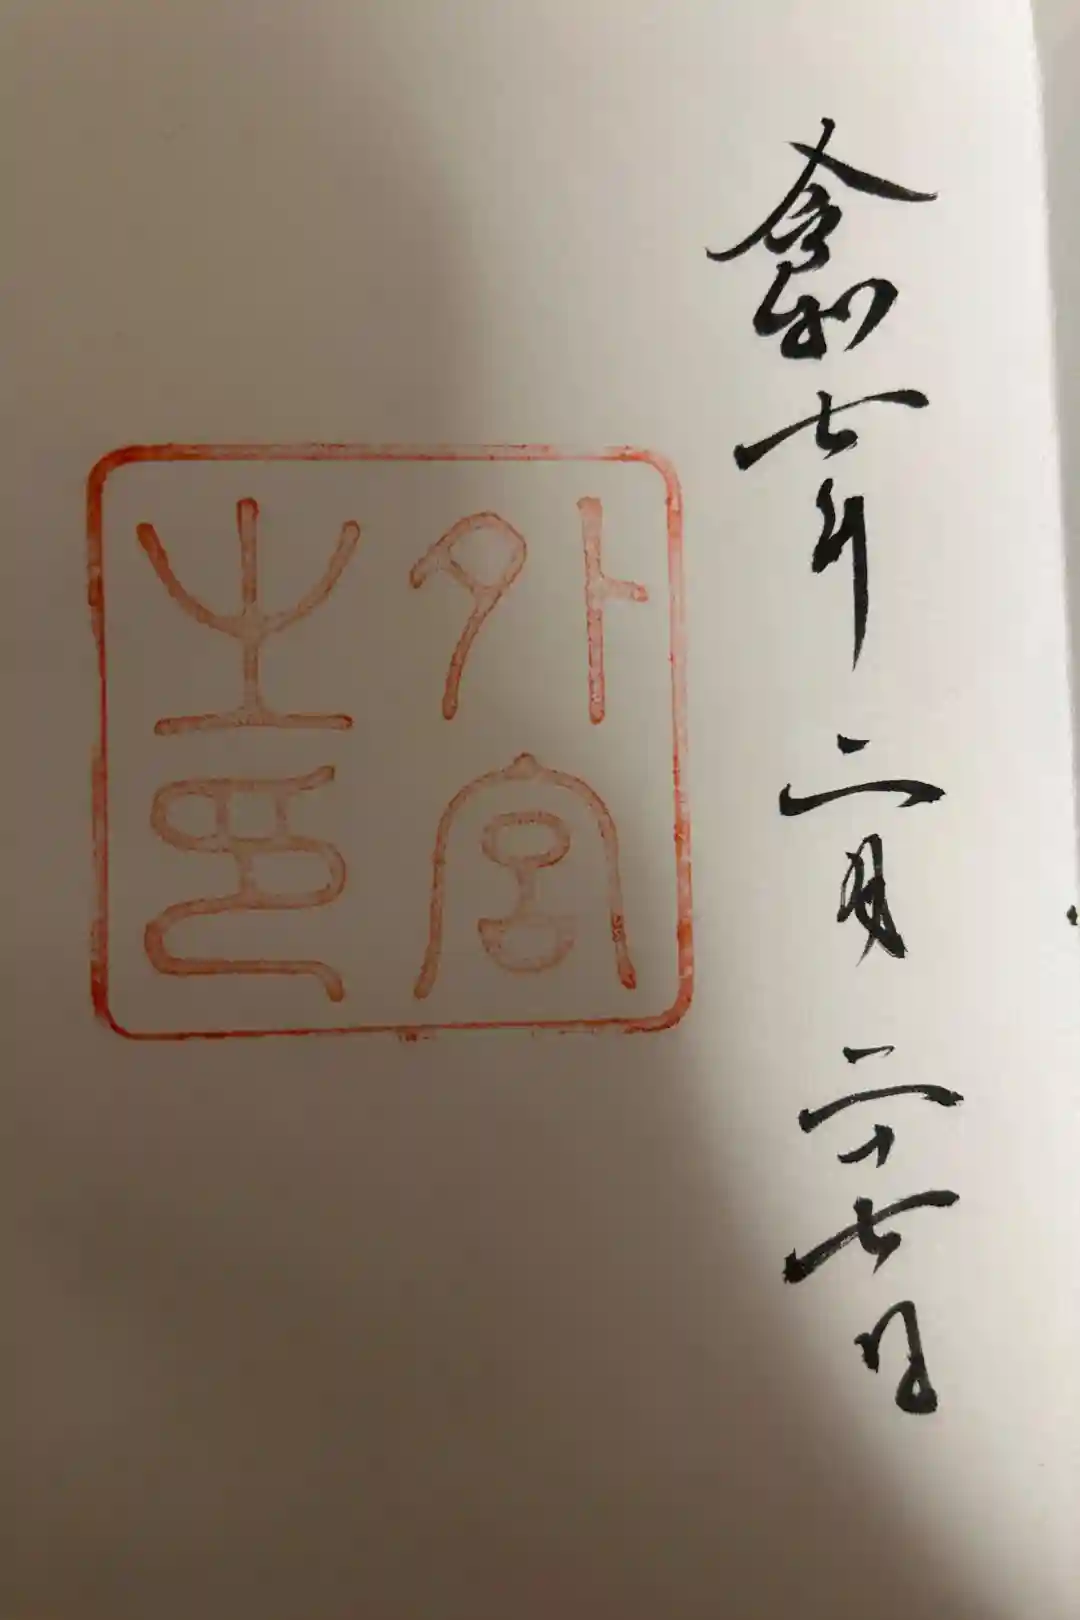 令和七年二月二十七日
外宮
之印